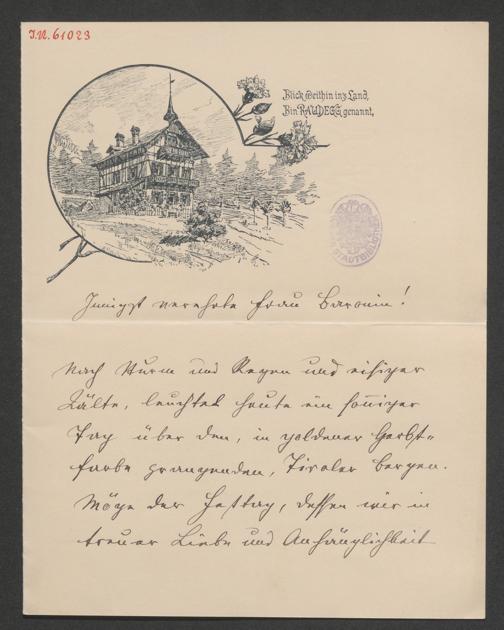 J.N. 61023
Blick weithin ins Land,
Bin RAUDEGG genannt,
STADTBIBLIOTHEK
Innigst verehrte Frau Baronin!
Nach Sturm und Regen und eisiger
Kälte, leuchtet heute ein sonniger
Tag über den, in goldener Herbst=
farbe prangenden, Tiroler Bergen.
Möge der Festtag, dessen wir in
treuer Liebe und Anhänglichkeit